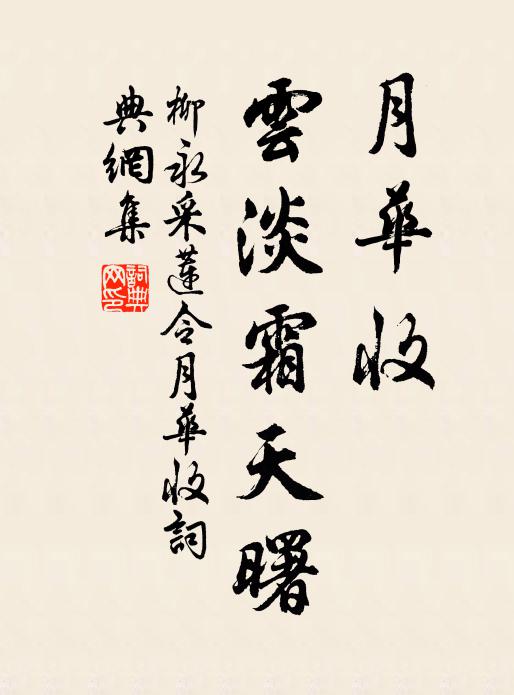 月華收
雲淡霜天曙
柳永采蓮令月華收詞
典網集
詞典
网印